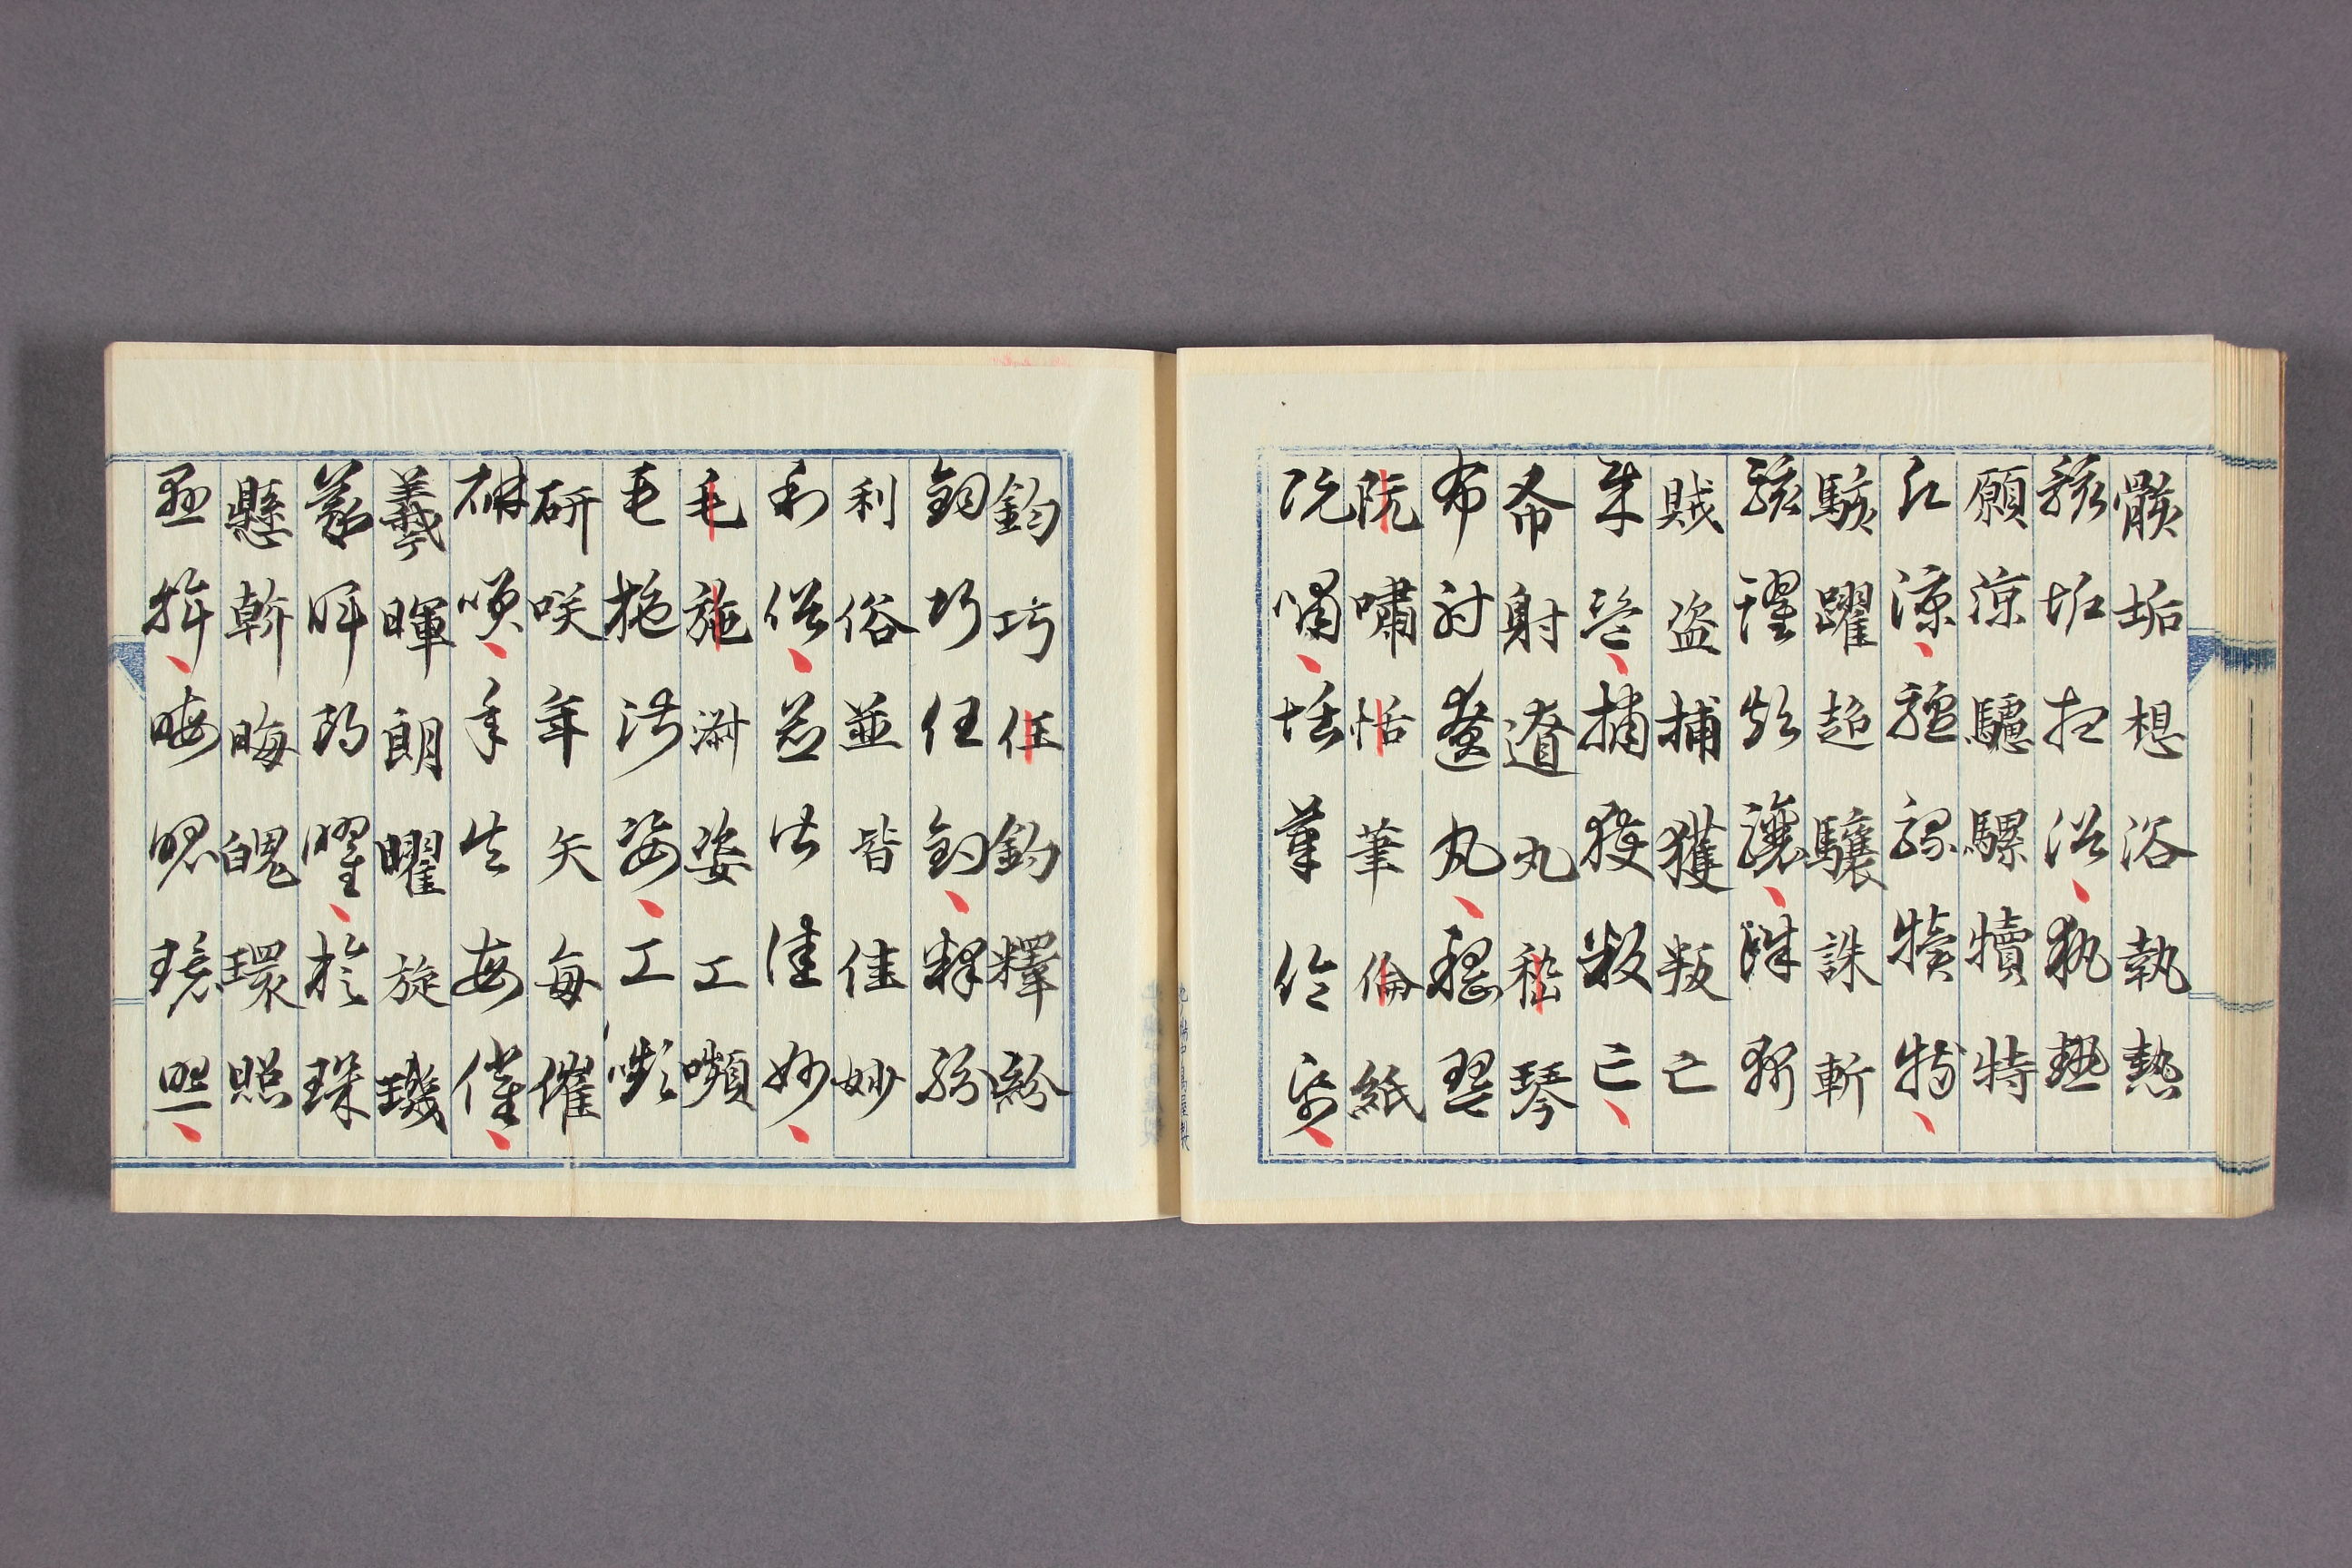 骸垢想浴執熱
骸垢想浴執熱
願涼驢騾犢特
願涼驢騾犢特
駭躍超驤誅斬
駭躍超驤誅斬
賊盗捕獲叛亡
賊盗捕獲叛亡
布射遼丸嵇琴
布射遼丸嵇琴
阮嘯恬筆倫紙
阮嘯恬筆倫紙
鈞巧任釣釋紛
鈞巧任釣釋紛
利俗並皆佳妙
利俗並皆佳妙
毛施淑姿工嚬
毛施淑姿工嚬
研咲年矢毎催
研咲年矢毎催
羲暉朗曜旋璣
羲暉朗曜旋璣
懸斡晦魄環照
懸斡晦魄環照